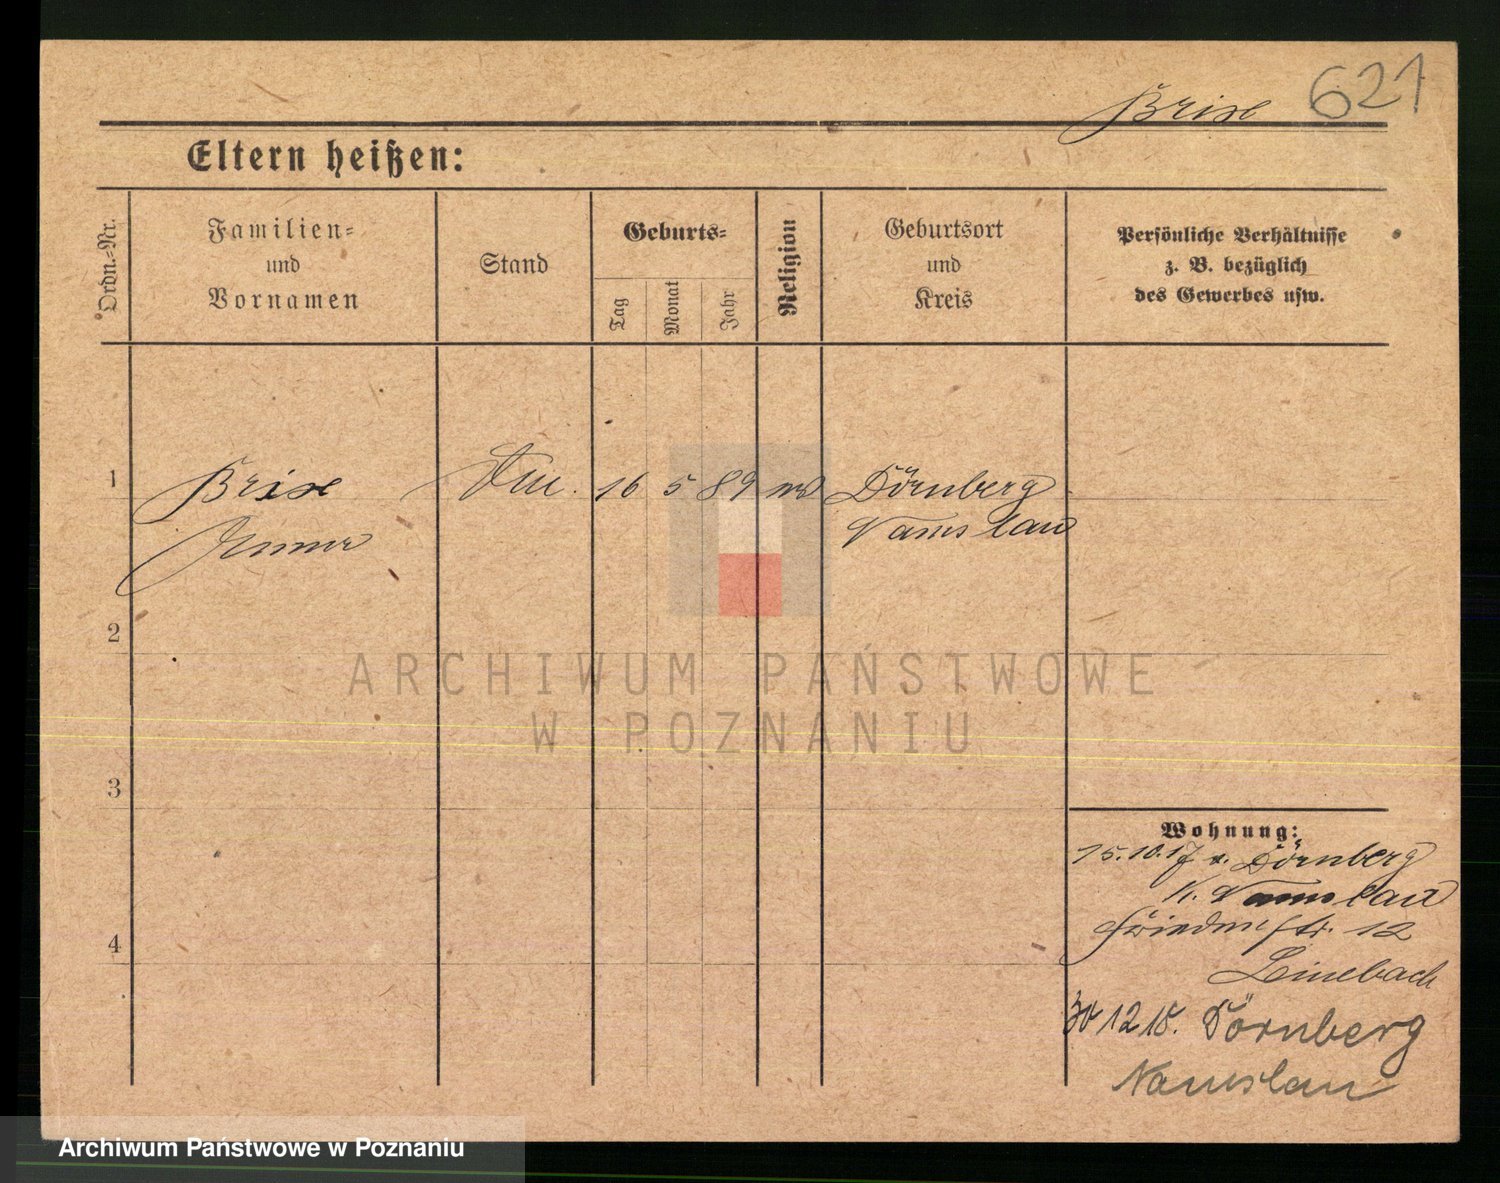 Brix 621
Eltern heißen:
Ordn.-Nr.
Familien-
und
Vornamen
Stand
Geburts-
Tag
Monat
Jahr
Religion
Geburtsort
und
Kreis
Persönliche Verhältnisse
z. B. bezüglich
des Gewerbes usw.
1
Brix 16 5 89 Dörnberg
Namslau
2
3
4
Wohnung:
15.10.17 v. Dörnberg
K. Namslau
str. 12
Leinebach
30 12 18. Dörnberg
Namslau
ARCHIWUM PAŃSTWOWE
W POZNANIU
Archiwum Państwowe w Poznaniu